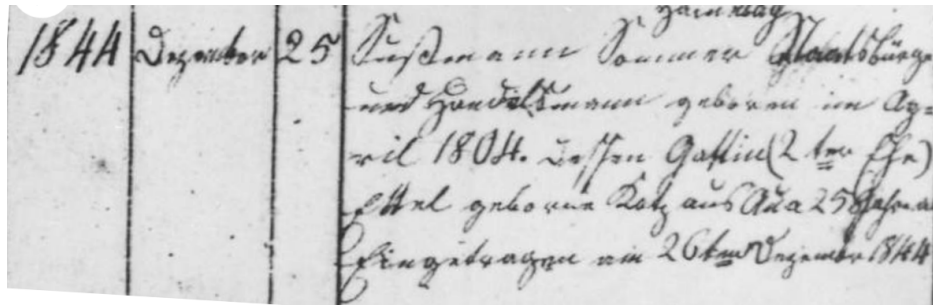 1844 Dezember 25 Sußmann Sommer Staatsbürge
und Handelsmann geboren im Ap=
ril 1804. dessen Gattin (2ter Ehe)
Ettel geborne Katz aus Aua 25 Jahre a
Eingetragen am 26ten Dezember 1844